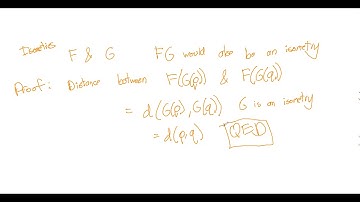 Isometries F & G FG would also be an isometry
Proof: Distance between F(G(p)) & F(G(q))
= d(G(p), G(q)) G is an isometry
= d(p,q) QED